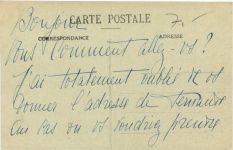 Bonjour
CARTE POSTALE 7.-
CORRESPONDANCE ADRESSE
Comment allez-vs?
J'ai totalement oublié de vs
donner l'adresse de
Au cas où vs voudriez prendre